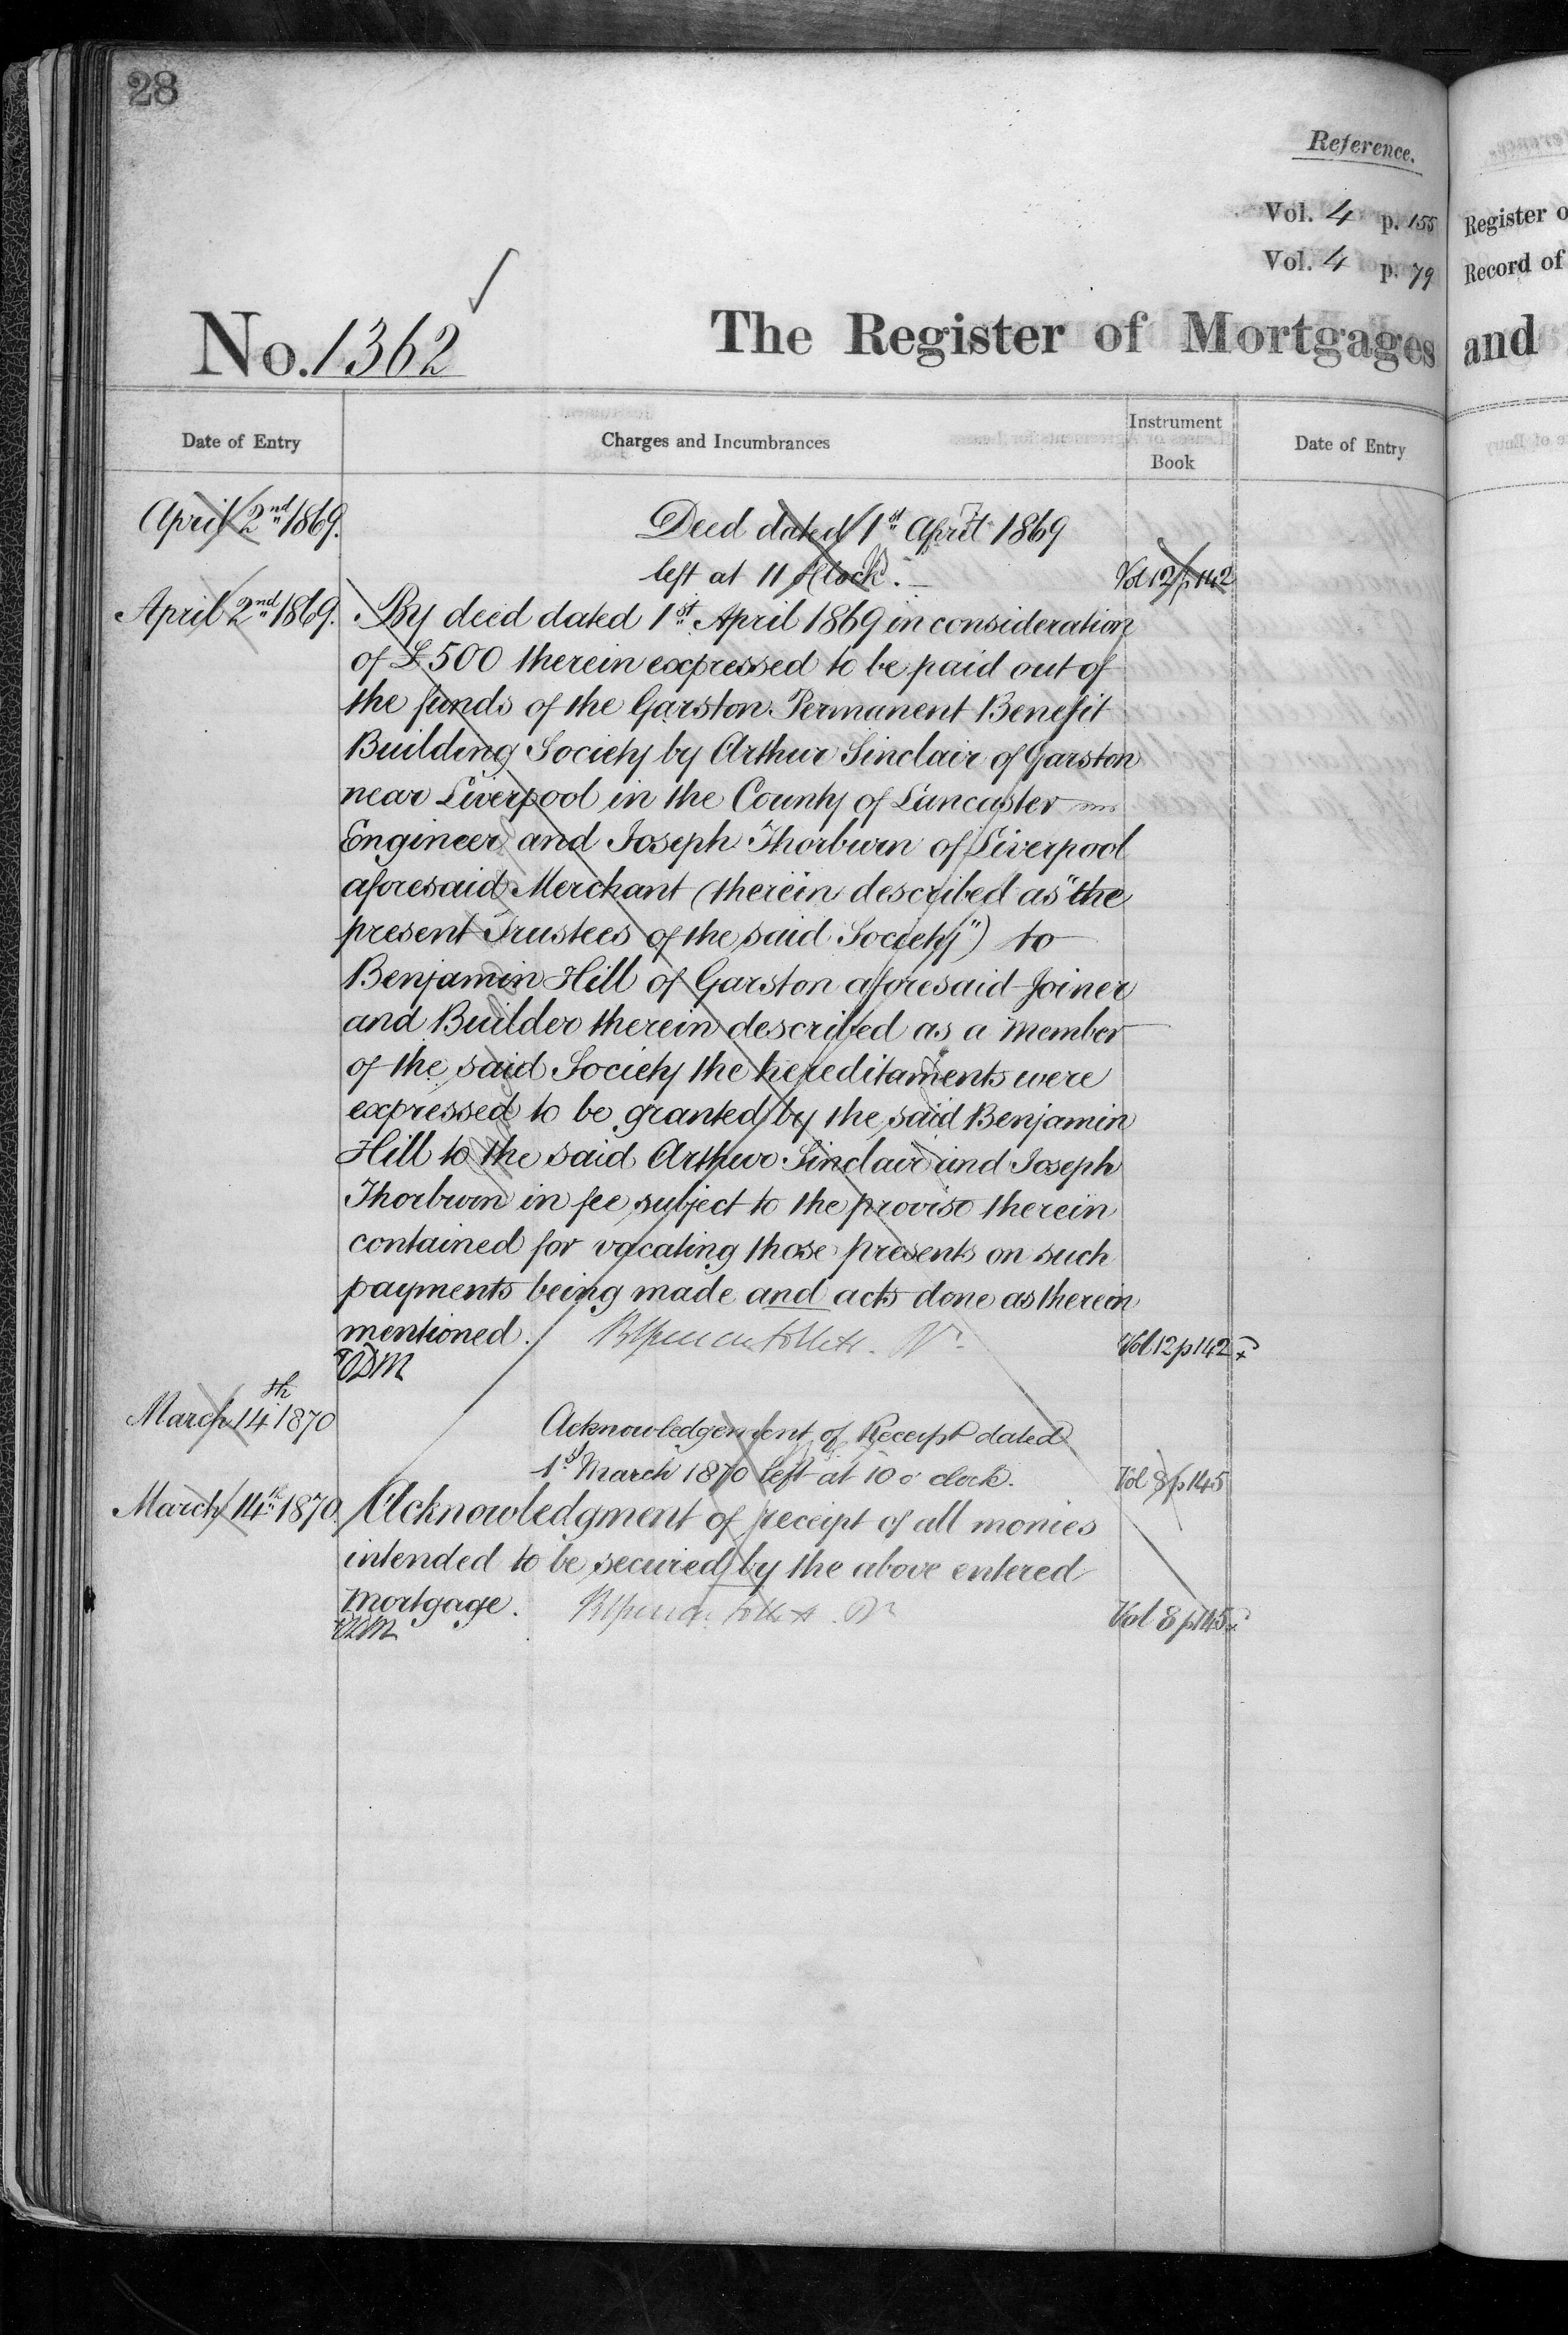 28
Reference.
Vol. 4 p. 155
Register o
Vol. 4 p. 79
Record of
No. 1362
The Register of Mortgages
and
Date of Entry
Charges and Incumbrances
Instrument
Book
Date of Entry
April 2nd 1869.
Deed dated 1st April 1869
left at 11 o'clock. Vol 12 p 142
April 2nd 1869. By deed dated 1st April 1869 in consideration
of £500 therein expressed to be paid out of
the funds of the Garston Permanent Benefit
Building Society by Arthur Sinclair of Garston
near Liverpool in the County of Lancaster
Engineer and Joseph Thorburn of Liverpool
aforesaid Merchant (therein described as "the
present Trustees of the said Society") to
Benjamin Hill of Garston aforesaid Joiner
and Builder therein described as a member
of the said Society the hereditaments were
expressed to be granted by the said Benjamin
Hill to the said Arthur Sinclair and Joseph
Thorburn in fee subject to the proviso therein
contained for vacating those presents on such
payments being made and acts done as therein
mentioned. Vol 12 p 142
March 14th 1870
Acknowledgement of Receipt dated
1st March 1870 left at 10 o'clock. Vol 8 p 145
March 14th 1870 Acknowledgment of receipt of all monies
intended to be secured by the above entered
Mortgage. Vol 8 p 145